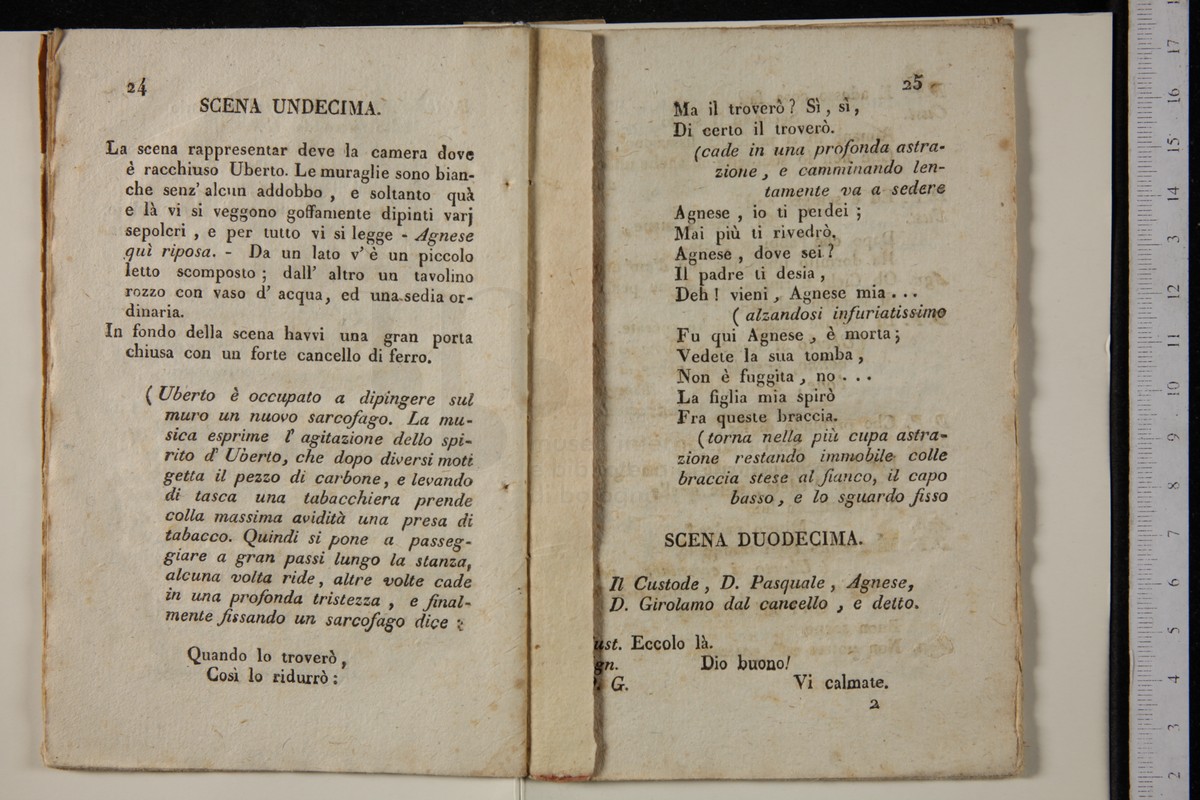 24
SCENA UNDECIMA.
La scena rappresentar deve la camera dove
è racchiuso Uberto. Le muraglie sono bian-
che senz' alcun addobbo , e soltanto quà
e là vi si veggono goffamente dipinti varj
sepolcri , e per tutto vi si legge - Agnese
quì riposa. - Da un lato v' è un piccolo
letto scomposto ; dall' altro un tavolino
rozzo con vaso d' acqua, ed una sedia or-
dinaria.
In fondo della scena havvi una gran porta
chiusa con un forte cancello di ferro.
( Uberto è occupato a dipingere sul
muro un nuovo sarcofago. La mu-
sica esprime l' agitazione dello spi-
rito d' Uberto, che dopo diversi moti
getta il pezzo di carbone, e levando
di tasca una tabacchiera prende
colla massima avidità una presa di
tabacco. Quindi si pone a passeg-
giare a gran passi lungo la stanza,
alcuna volta ride, altre volte cade
in una profonda tristezza , e final-
mente fissando un sarcofago dice :
Quando lo troverò,
Così lo ridurrò :
25
Ma il troverò ? Sì , sì ,
Di certo il troverò.
(cade in una profonda astra-
zione , e camminando len-
tamente va a sedere
Agnese , io ti perdei ;
Mai più ti rivedrò.
Agnese , dove sei ?
Il padre ti desia ,
Deh ! vieni , Agnese mia . . .
( alzandosi infuriatissimo
Fu qui Agnese , è morta ;
Vedete la sua tomba ,
Non è fuggita , no . . .
La figlia mia spirò
Fra queste braccia.
( torna nella più cupa astra-
zione restando immobile colle
braccia stese al fianco, il capo
basso , e lo sguardo fisso
SCENA DUODECIMA.
Il Custode , D. Pasquale , Agnese,
D. Girolamo dal cancello , e detto.
ust. Eccolo là.
gn. Dio buono!
. G. Vi calmate.
2
17
16
15
14
13
12
11
10
9
8
7
6
5
4
3
2